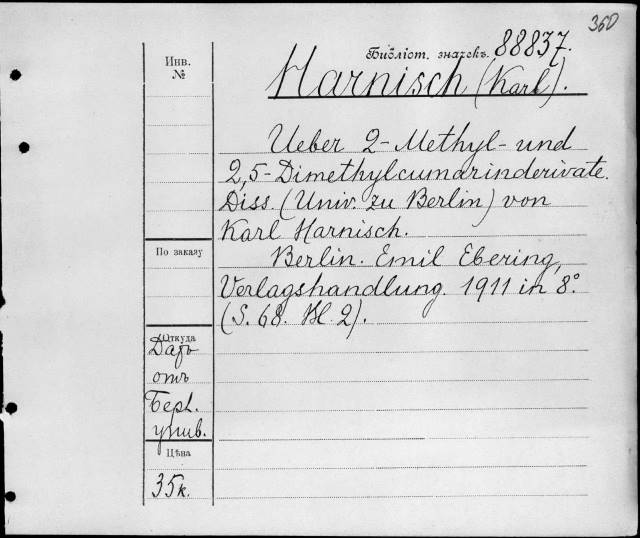 360
Библіот. значекъ. 88837.
Harnisch (Karl).
Инв.
№
Ueber 2-Methyl- und
2,5-Dimethylcumarinderivate.
Diss. (Univ. zu Berlin) von
Karl Harnisch.
Berlin. Emil Ebering,
Verlagshandlung. 1911 in 8°.
(S. 68. Bl. 2).
По заказу
Откуда
Даръ
отъ
Берл.
унив.
Цѣна
35к.